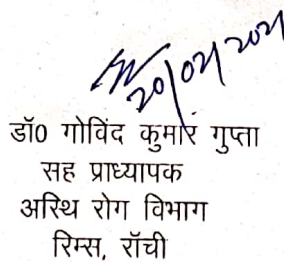 20/02/2021
डॉ0 गोविंद कुमार गुप्ता
सह प्राध्यापक
अस्थि रोग विभाग
रिम्स, रॉची